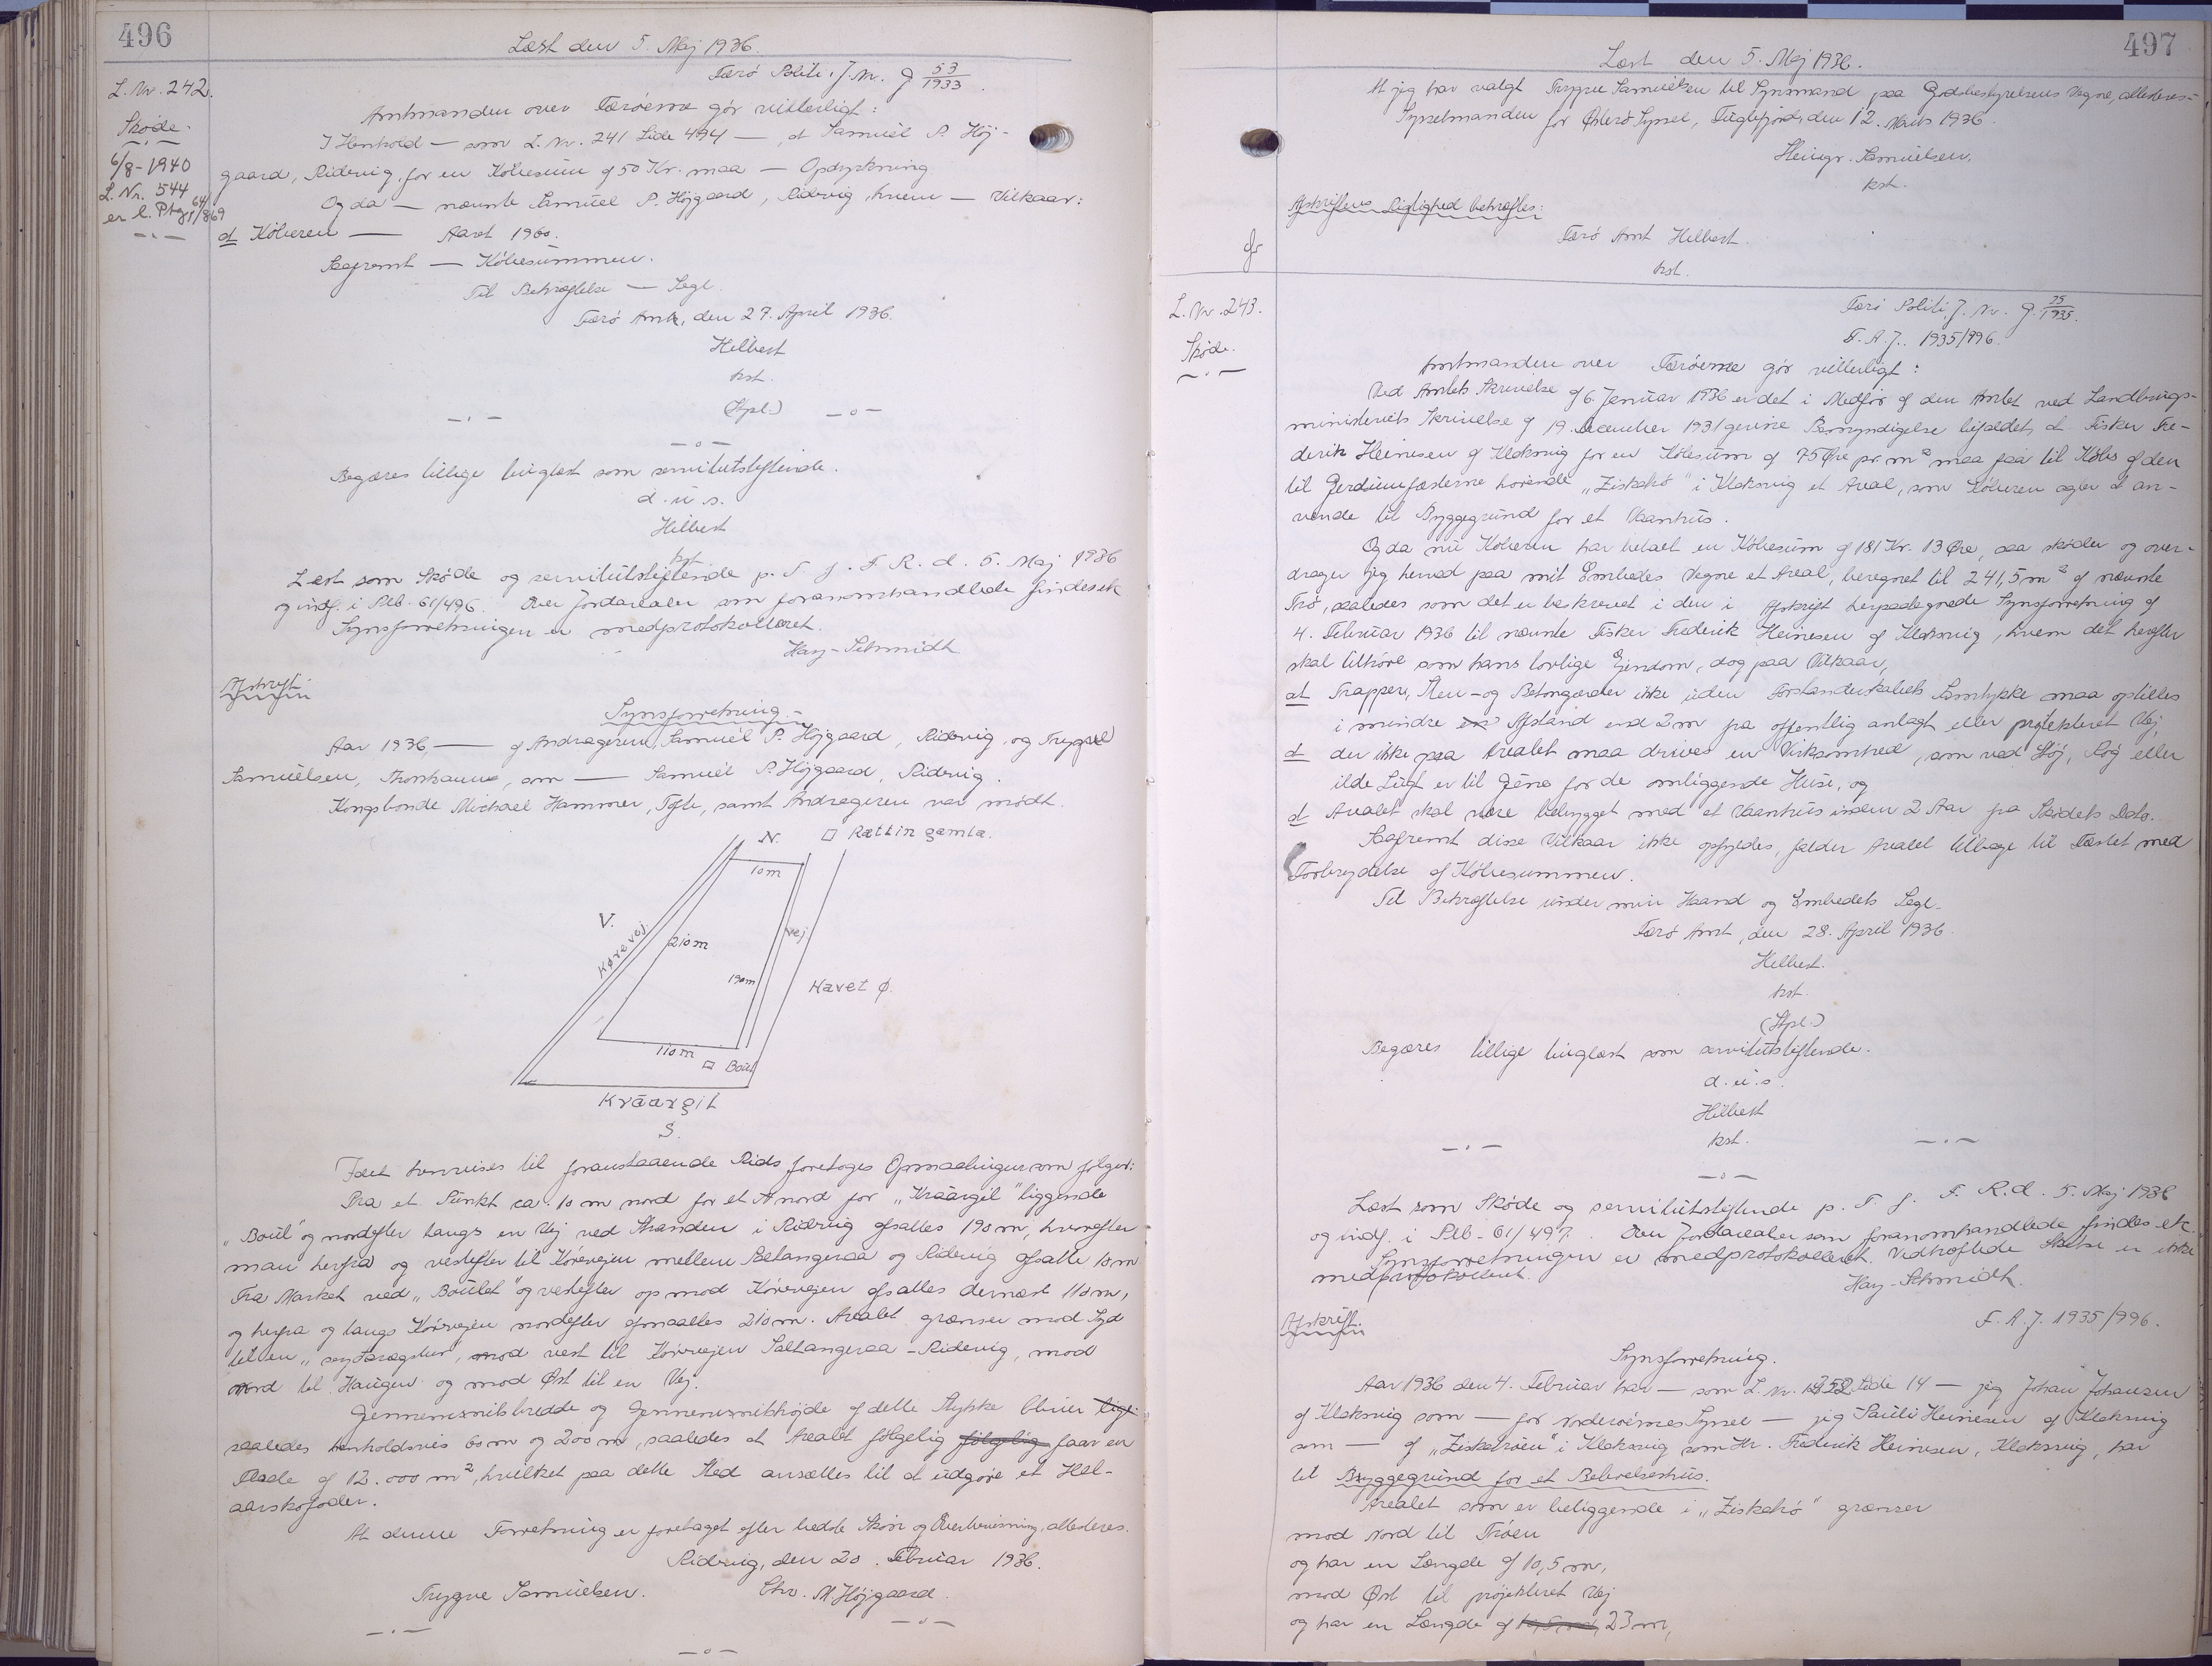 496
Læst den 5. Maj 1936.
L. Nr. 242.
Skøde.
6/8-1940
L. Nr. 544
er l. Ptg 64/8/69
Færö Politi, J. Nr. G 53/1933.
Amtmanden over Færöerne gör vitterligt:
I Henhold — som L. Nr. 241 Side 494 —, at Samuel P. Höj-
gaard, Ridevig, for en Köbesum af 50 Kr. maa — Opdyrkning
Og da — nævnte Samuel P. Höjgaard, Ridevig, hvem — Vilkaar:
at Köberen — Aaret 1960.
Saafremt — Köbesummen.
Til Bekræftelse — Segl.
Færö Amt, den 27. April 1936.
Hilbert
kst.
(Stpl.)
Begæres tillige tinglæst som servitutstiftende.
d. u. s.
Hilbert
kst
Læst som Sköde og servitutstiftende p. T. f. F. R. d. 5. Maj 1936
og indf. i Ptb. 61/496. Over Jordarealer som foranomhandlede findes ek.
Synsforretningen er medprotokolleret.
Hay-Schmidt
Afskrift.
Synsforretning.
Aar 1936, — af Andrageren, Samuel P. Höjgaard, Ridevig, og Trygve
Samuelsen, Thorshavn, som — Samuel P. Höjgaard, Ridevig.
Kongsbonde Michael Hammer, Tofte, samt Andrageren var mödt.
N. Rættin gamla.
10 m
V.
Kørevej
210 m
vej
190 m
Havet Ø.
110 m
Boul
Kráargil
S.
Idet henvises til foranstaaende Rids foretoges Opmaalingen som fölger:
Fra et Punkt ca. 10 m nord for et nord for "Kráargil" liggende
"Boul" og nordefter langs en Vej ved Stranden i Ridevig afsattes 190 m, hvorefter
man herfra og vestefter til Körevejen mellem Saltangeraa og Ridevig afsatte 10 m
Fra Mærket ved "Boulet" og vestefter op mod Körevejen afsattes dernæst 110 m,
og herfra og langs Körevejen nordefter afmaaltes 210 m. Arealet grænser mod Syd
til en , mod vest til Körevejen Saltangeraa - Ridevig, mod
nord til Haugen og mod Øst til en Vej.
Gennemsnitsbredde og Gennemsnitshöjde af dette Stykke bliver lige
saaledes henholdsvis 60 m og 200 m, saaledes at Arealet fölgelig fölgelig faar en
Flade af 12.000 m², hvilket paa dette Sted ansættes til at udgöre et Hel-
aarskofoder.
At denne Forretning er foretaget efter bedste Skön og Overbevisning, attesteres.
Ridevig, den 20. Februar 1936.
Trygve Samuelsen. Chr. M. Höjgaard
497
Læst den 5. Maj 1936.
At jeg har valgt Trygve Samuelsen til Synsmand paa Godsbestyrelsens Vegne, attesteres.
Sysselmanden for Østerö Syssel, Fuglefjord, den 12. Marts 1936
Heingr. Samuelsen.
kst.
Afskriftens Rigtighed bekræftes:
Færö Amt Hilbert.
kst.
L. Nr. 243.
Skøde.
Færö Politi, J. Nr. G. 25/1935.
F. A. J. 1935/996.
Amtmanden over Færöerne gör vitterligt:
Ved Amtets Skrivelse af 6. Januar 1936 er det i Medför af den Amtet ved Landbrugs-
ministeriets Skrivelse af 19. December 1931 givne Bemyndigelse bifaldet, at Fisker Fre-
derik Heinesen af Klaksvig for en Köbesum af 75 Øre pr. m² maa faa til Köbs af den
til Gerdumfæsterne hörende "Ziskatrö" i Klaksvig et Areal, som Köberen agter at an-
vende til Byggegrund for et Vaanhus.
Og da nu Köberen har betalt en Köbesum af 181 Kr. 13 Øre, saa sköder og over-
drager jeg herved paa mit Embedes Vegne et Areal, beregnet til 241,5 m² af nævnte
Trö, saaledes som det er beskrevet i den i Afskrift herpaategnede Synsforretning af
4. Februar 1936 til nævnte Fisker Frederik Heinesen af Klaksvig, hvem det herefter
skal tilhöre som hans lovlige Ejendom, dog paa Vilkaar,
at Trapper, Sten- og Betongærder ikke uden Forstanderskabets Samtykke maa opstilles
i mindre Afstand end 2 m fra offentlig anlagt eller projekteret Vej,
at der ikke paa Arealet maa drives en Virksomhed, som ved Støj, Røg eller
ilde Lugt er til Gêne for de omliggende Huse, og
at Arealet skal være bebygget med et Vaanhus inden 2 Aar fra Skødets Dato.
Saafremt disse Vilkaar ikke opfyldes, falder Arealet tilbage til Fæstet med
Fortrydelse af Köbesummen.
Til Bekræftelse under min Haand og Embedets Segl.
Færö Amt, den 28. April 1936.
Hilbert.
kst.
(Stpl.)
Begæres tillige tinglæst som servitutstiftende.
d. u. s.
Hilbert
kst.
Læst som Sköde og servitutstiftende p. T. f. F. R. d. 5. Maj 1936
og indf. i Ptb. 61/497. Over Jordarealer som foranomhandlede findes ek.
Synsforretningen er medprotokolleret. Vedhæftede Skitse er ikke
medprotokolleret.
Hay-Schmidt.
Afskrift.
F. A. J. 1935/996.
Synsforretning.
Aar 1936 den 4. Februar har — som L. Nr. Side 14 — jeg Johan Johansen
af Klaksvig som — for Norderöernes Syssel — jeg Pauli Heinesen af Klaksvig
som — af "Ziskatröen" i Klaksvig som Hr. Frederik Heinesen, Klaksvig, har
til Byggegrund for et Beboelseshus.
Arealet som er beliggende i "Ziskatrö" grænser
mod Nord til Tröen
og har en Længde af 10,5 m,
mod Øst til projekteret Vej
og har en Længde af 23 m,